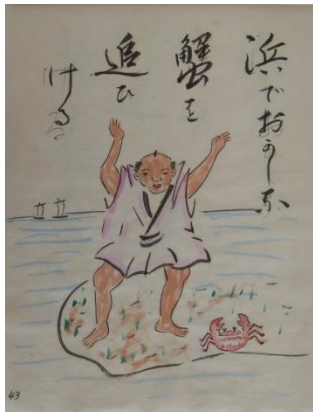 浜でおかしな
蟹を
追ひ
ける
43